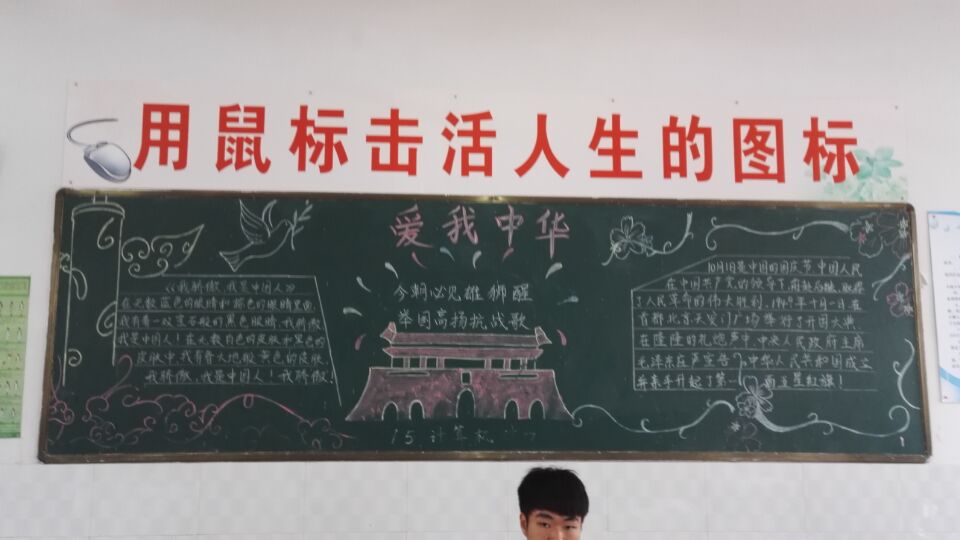 用鼠标击活人生的图标
爱我中华
今朝必见雄狮醒
举国高扬抗战歌
《我骄傲,我是中国人》
在无数蓝色的眼睛和棕色的眼睛里面,
我有着一双宝石般的黑色眼睛,我骄傲
我是中国人!在无数白色的皮肤和黑色的
皮肤中,我有着大地般黄色的皮肤,
我骄傲,我是中国人!我骄傲!
10月1日是中国的国庆节,中国人民
在中国共产党的领导下,前赴后继,取得
了人民革命的伟大胜利,1949年十月一日,在
首都北京天安门广场举行了开国大典,
在隆隆的礼炮声中,中央人民政府主席
毛泽东庄严宣告,中华人民共和国成立
并亲手升起了第一面五星红旗!
15计算机